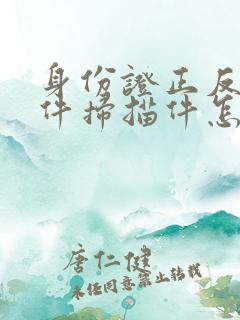 身份證正反
件掃描件怎
唐仁健
未经同意禁止转载